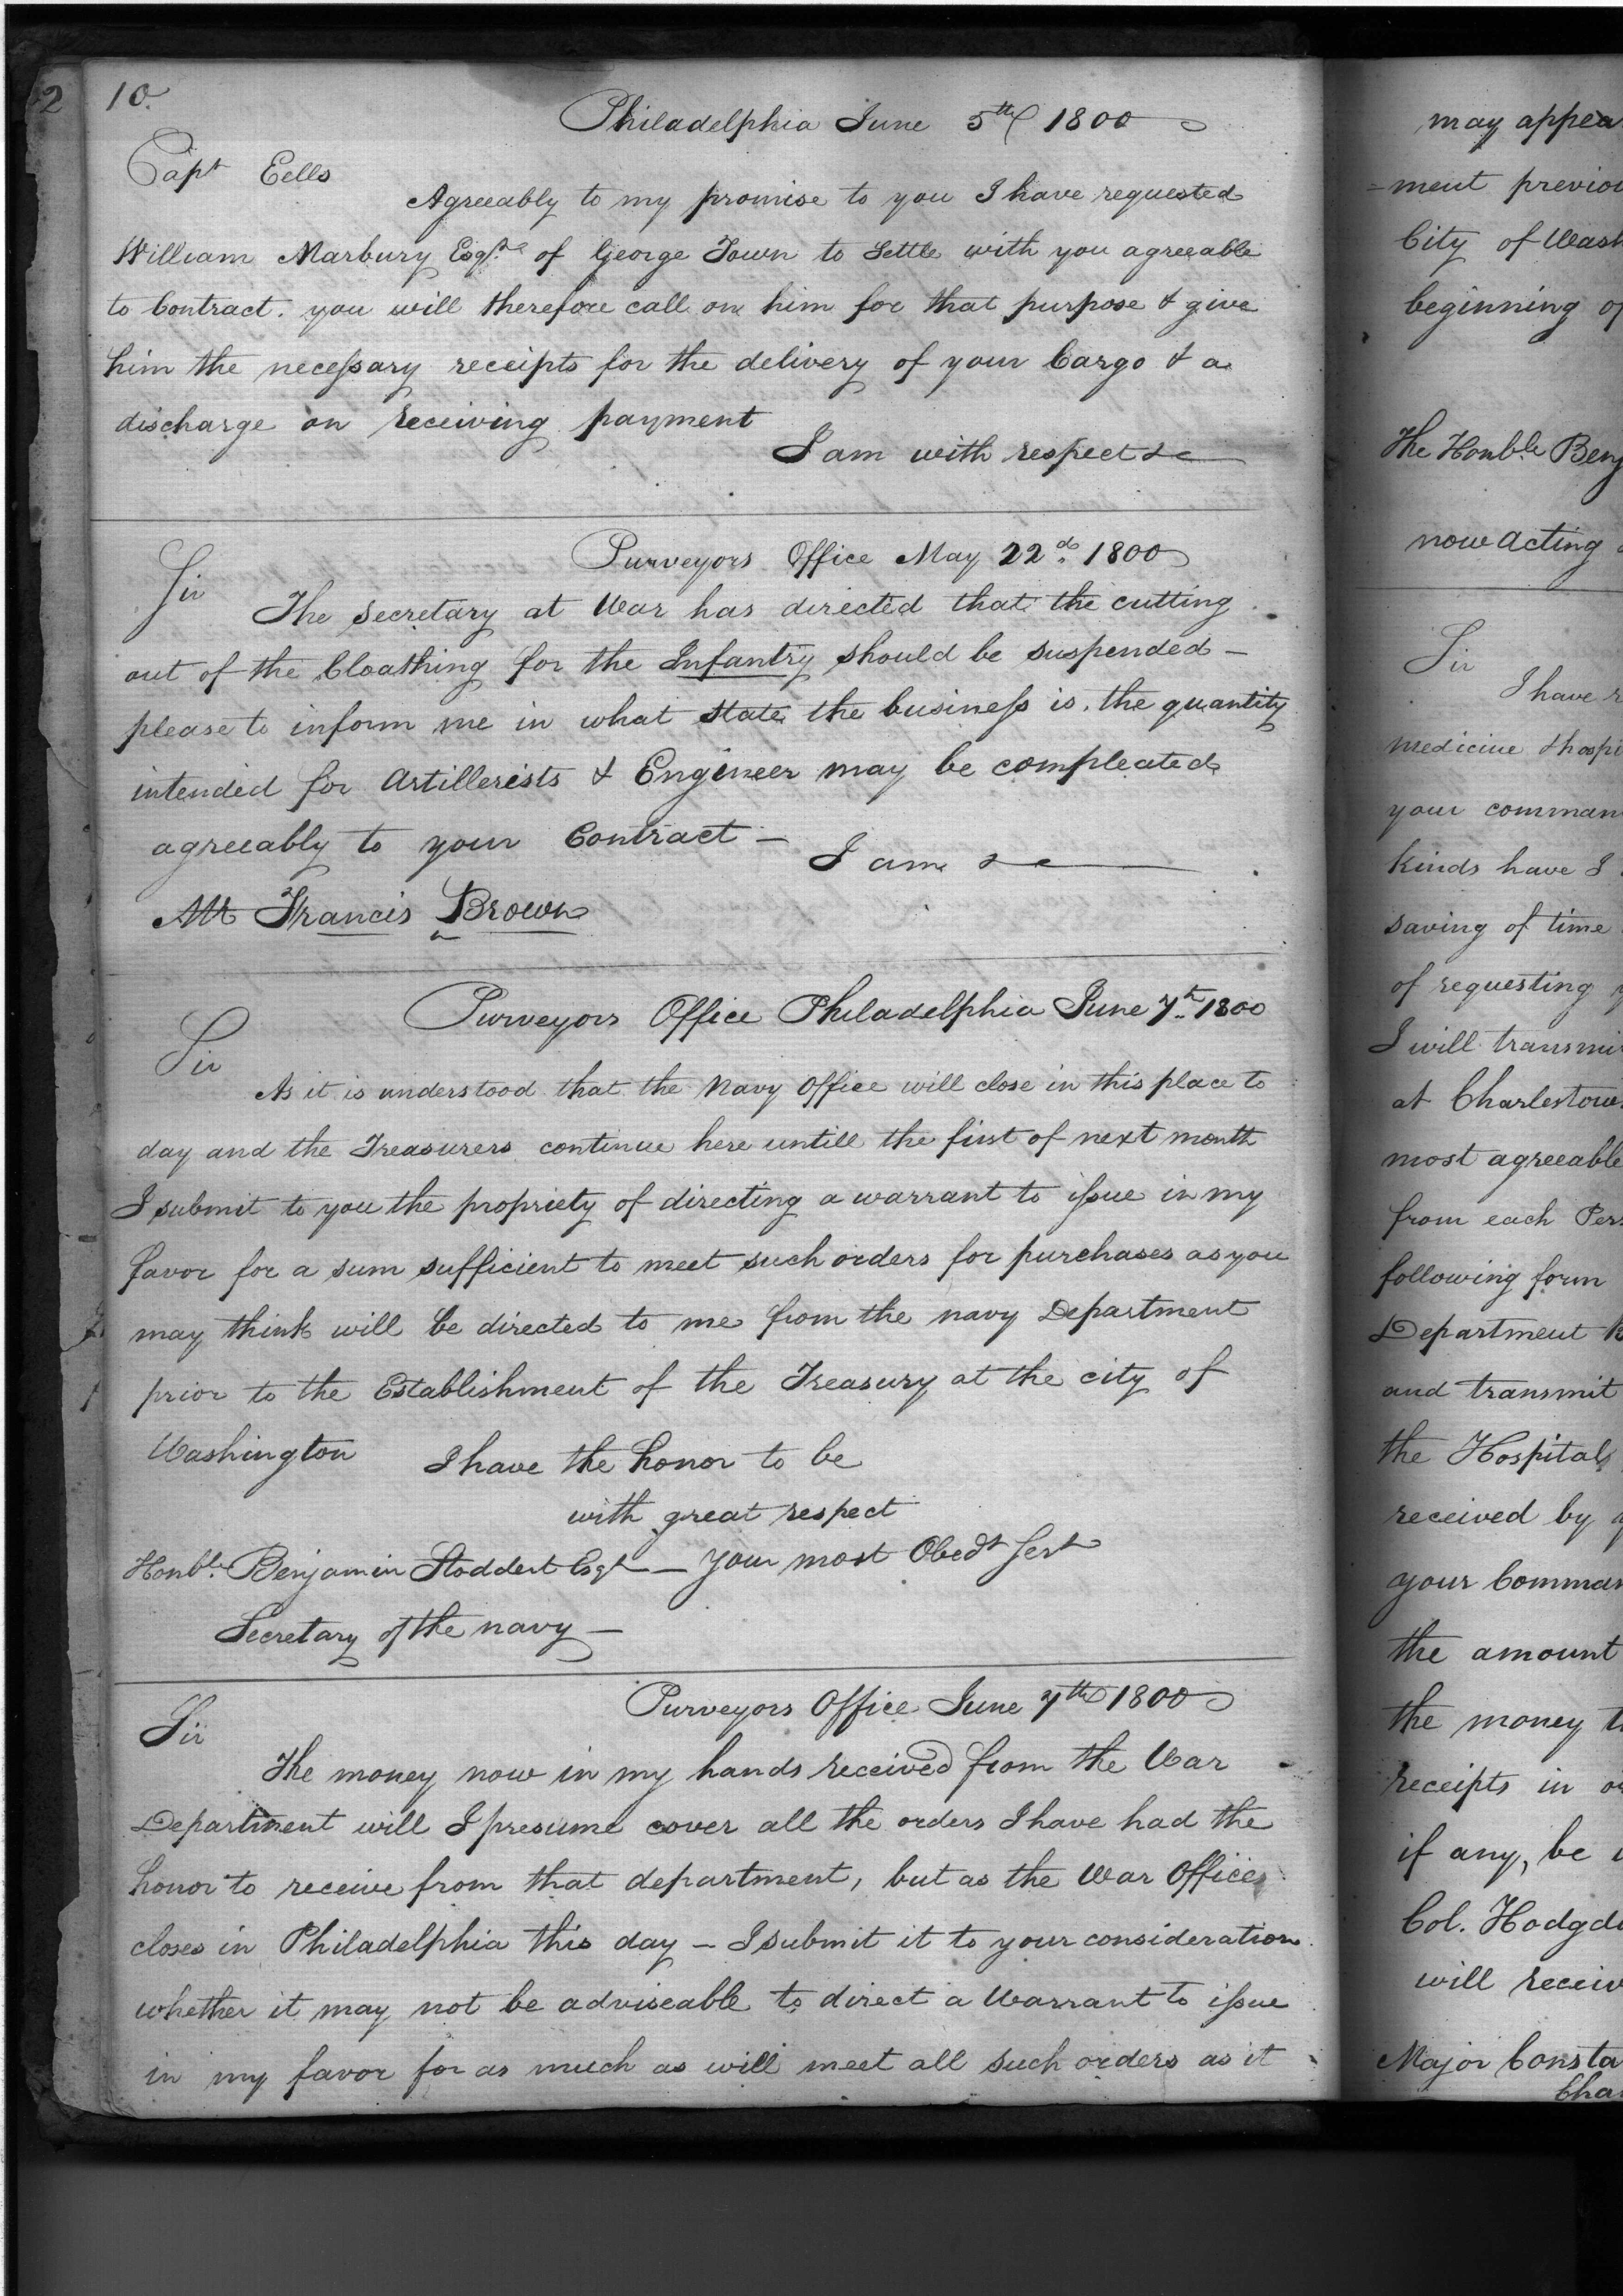 2
10.
Philadelphia June 5th 1800
Capt Eells
Agreeably to my promise to you I have requested
William Marbury Esqr. of George Town to Settle with you agreeable
to Contract. you will therefore call on him for that purpose & give
him the necessary receipts for the delivery of your Cargo & a
discharge on receiving payment
I am with respect &c
Purveyors Office May 22d. 1800
Sir
The Secretary at War has directed that the cutting
out of the Cloathing for the Infantry should be suspended –
please to inform me in what state the business is. the quantity
intended for Artillerists & Engineer may be compleated
agreeably to your Contract –
I am &c
Mr Francis Brown
Purveyors Office Philadelphia June 7th 1800
Sir
As it is understood that the Navy Office will close in this place to
day and the Treasurers continue here untill the first of next month
I submit to you the propriety of directing a warrant to issue in my
favor for a sum sufficient to meet such orders for purchases as you
may think will be directed to me from the navy Department
prior to the Establishment of the Treasury at the city of
Washington I have the honor to be
with great respect
Honbl. Benjamin Stoddert Esqr – Your most Obedt Sert
Secretary of the navy –
Purveyors Office June 7th 1800
Sir
The money now in my hands received from the War
Department will I presume cover all the orders I have had the
honor to receive from that department, but as the War Office
closes in Philadelphia this day – I submit it to your consideration
whether it may not be adviseable to direct a Warrant to issue
in my favor for as much as will meet all such orders as it
may appea
=ment previou
City of Wash
beginning of
The Honble Benj
now acting
Sir
I have
medicine & hospi
your comman
kinds have I
saving of time
of requesting
I will transmi
at Charlestow
most agreeable
from each Pers
following form
Department
and transmit
the Hospital
received by
your Comman
the amount
the money t
receipts in o
if any, be
Col. Hodgd
will receiv
Major Consta
Cha